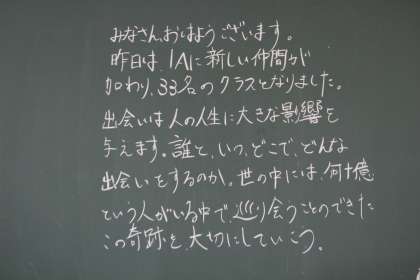 みなさん、おはようございます。
昨日は、1Aに新しい仲間が
加わり、33名のクラスとなりました。
出会いは人の人生に大きな影響を
与えます。誰と、いつ、どこで、どんな
出会いをするのか。世の中には、何十億
という人がいる中で、巡り会うことのできた
この奇跡を、大切にしていこう。